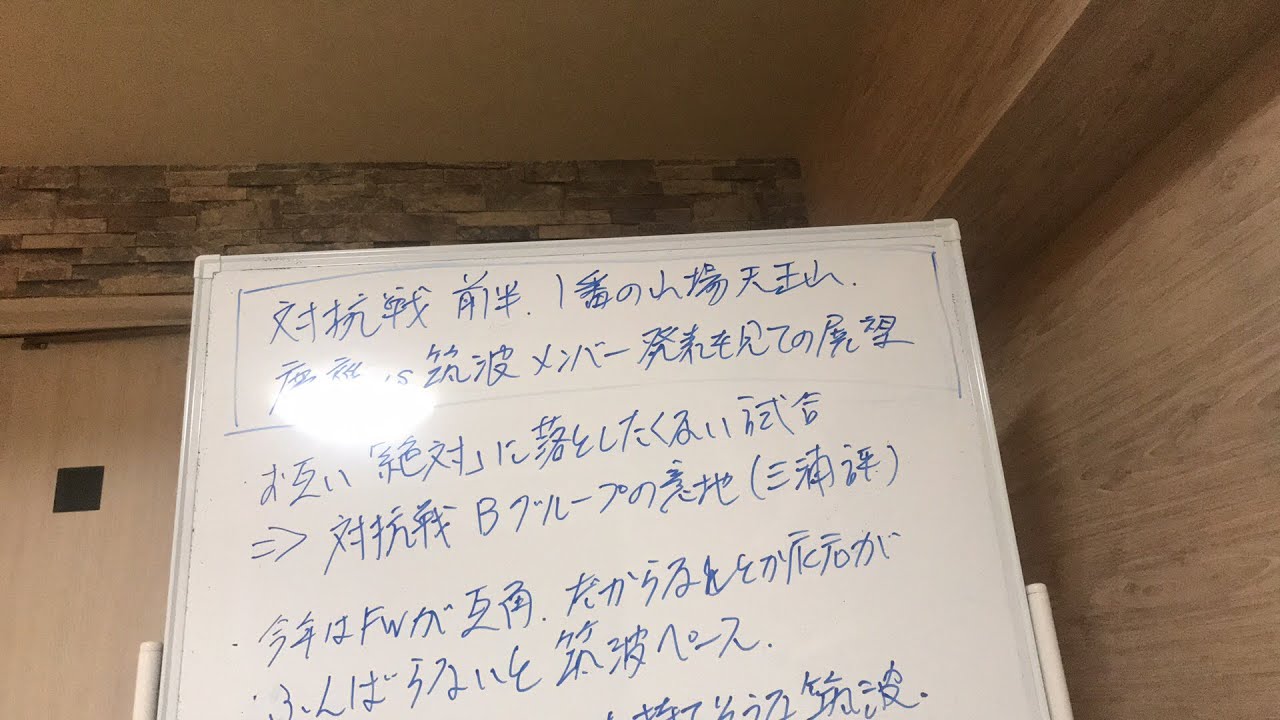 対抗戦 前半. 1番の山場天王山.
筑波 メンバー発表も見ての展望
お互い「絶対」に落としたくない試合
⇒ 対抗戦 Bグループの意地(三浦評)
・今年はFWが互角. だから
・ふんばらないと 筑波ペース.
筑波.